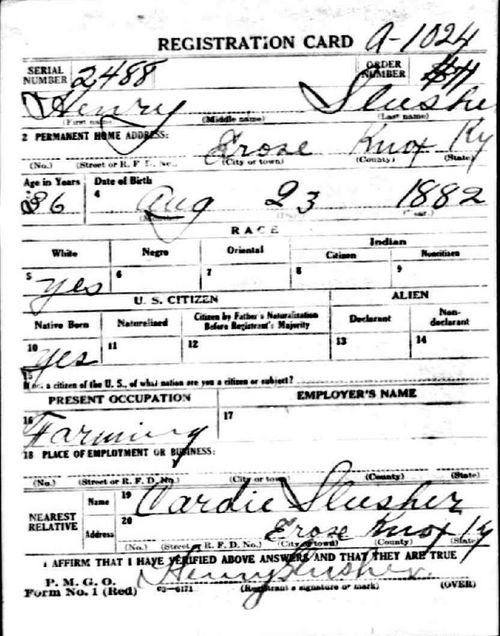 REGISTRATION CARD A-1024
SERIAL NUMBER 2488 ORDER NUMBER
Henry Slusher
(First name) (Middle name) (Last name)
2 PERMANENT HOME ADDRESS:
Erose Knox Ky
(No.) (Street or R. F. D. No.) (City or town) (County) (State)
Age in Years Date of Birth
36 4 Aug 23 1882
RACE
White Negro Oriental Indian
Citizen Noncitizen
5 yes 6 7 8 9
U. S. CITIZEN ALIEN
Native Born Naturalized Citizen by Father's Naturalization Before Registrant's Majority Declarant Non-declarant
10 yes 11 12 13 14
15
If not a citizen of the U. S., of what nation are you a citizen or subject?
PRESENT OCCUPATION EMPLOYER'S NAME
16 Farming 17
18 PLACE OF EMPLOYMENT OR BUSINESS:
(No.) (Street or R. F. D. No.) (City or town) (County) (State)
NEAREST RELATIVE Name 19 Cardie Slusher
Address 20 Erose Knox Ky
(No.) (Street or R. F. D. No.) (City or town) (County) (State)
I AFFIRM THAT I HAVE VERIFIED ABOVE ANSWERS AND THAT THEY ARE TRUE
P. M. G. O.
Form No. 1 (Red) 03-6171 Henry Slusher (Registrant's signature or mark) (OVER)